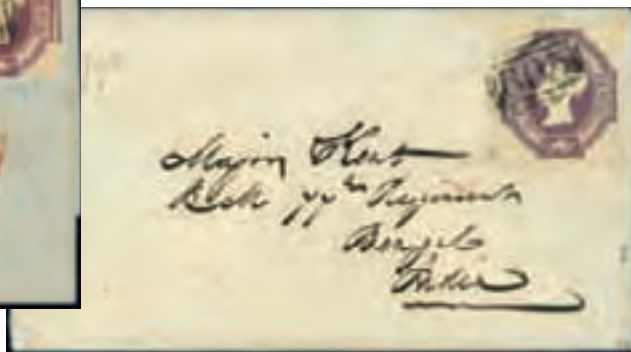 Major Kent
77th Regiment
Bengal
India